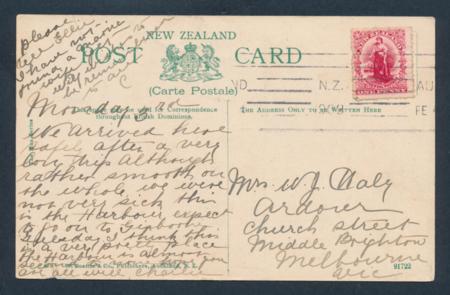 Please
Dear Ellie
I have not
found a
NEW ZEALAND
POST CARD
(Carte Postale)
N.Z.
AU
FE
ONE PENNY
Monday
for Correspondence
throughout British Dominions.
The Address Only to be Written Here
We arrived here
safely after a very
long trip although
rather smooth on
the whole, we were
not very sick this
is the Harbour, expect
to go on to
I think this
is a very pretty place
the Harbour is almost
are all well Charlie
Mrs. W. J. Daly
Ardover
Church street
Middle Brighton
Melbourne
Vic
91722